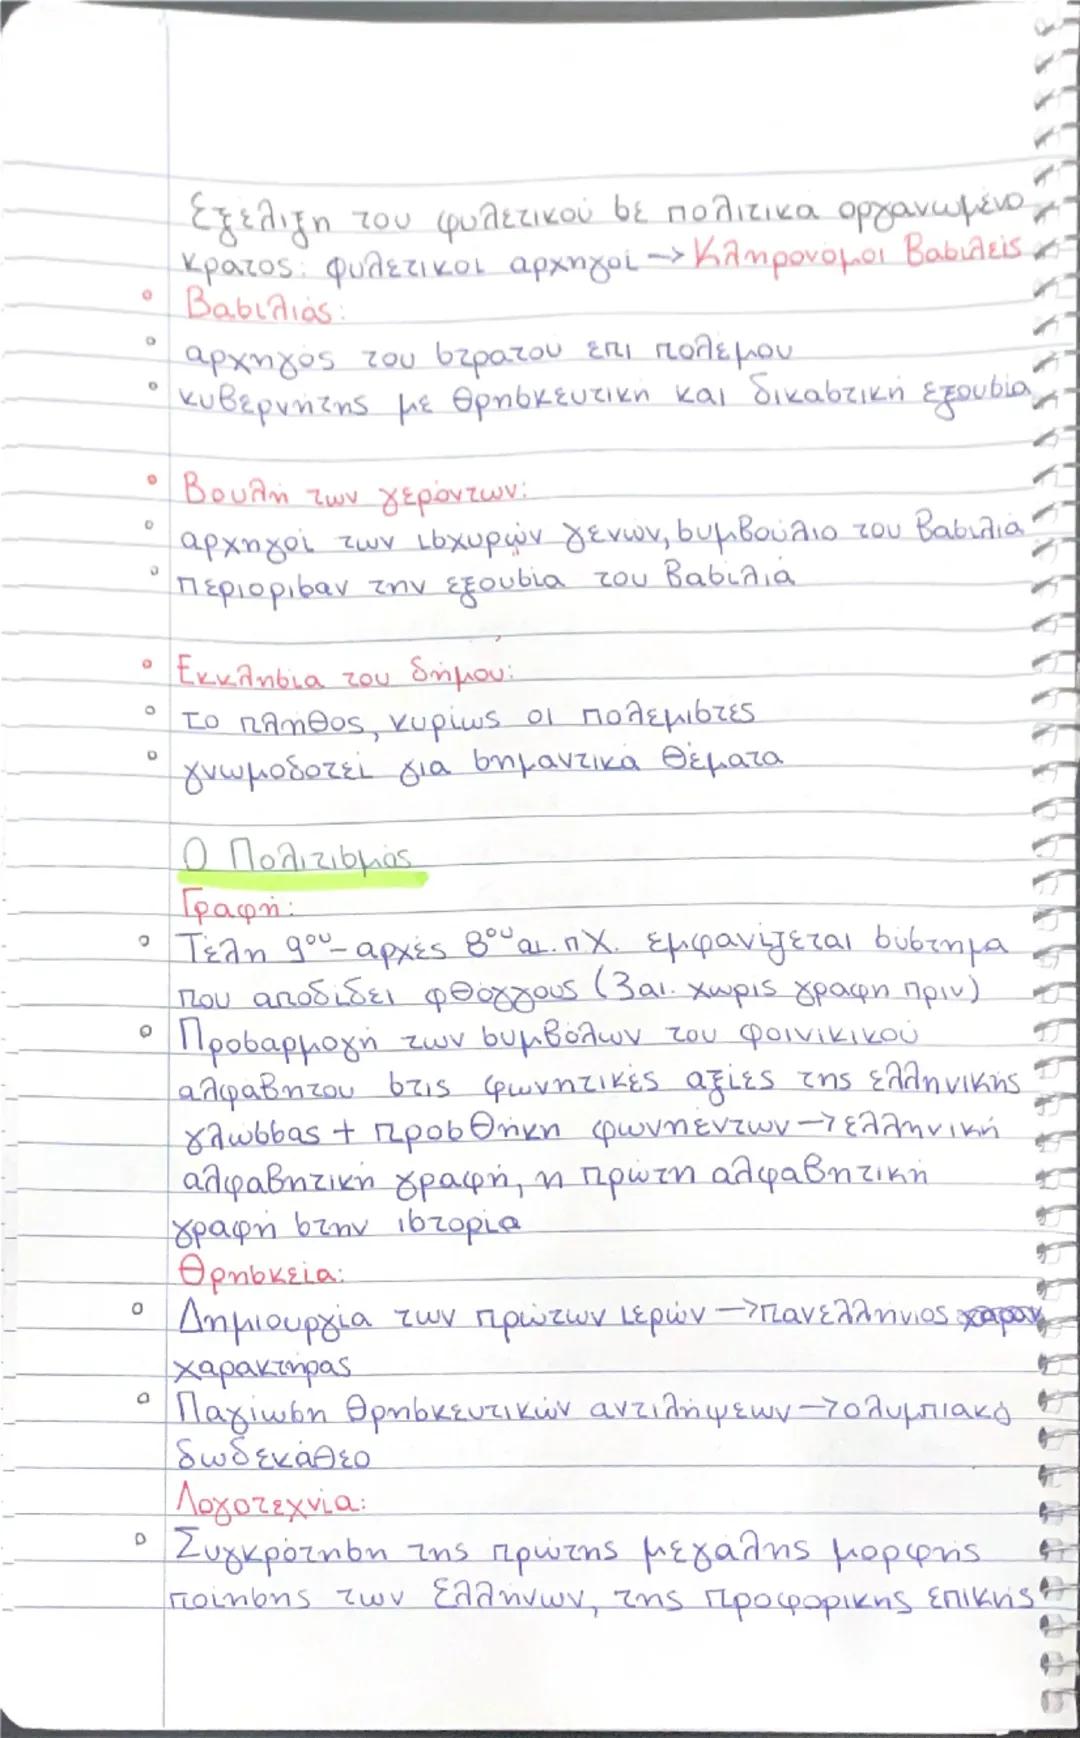 Εξέλιξη του φυλετικού σε πολιτικά οργανωμένο
κράτος: φυλετικοί αρχηγοί → Κληρονόμοι Βασιλείς
Βασιλιάς:
αρχηγός του στρατού επί πολέμου
κυβερνήτης με θρησκευτική και δικαστική εξουσία
Βουλή των γερόντων:
αρχηγοί των ισχυρών γενών, συμβούλιο του Βασιλιά
Περιόρισαν την εξουσία του Βασιλιά
Εκκλησία του δήμου:
το πλήθος, κυρίως οι πολεμιστές
γνωμοδοτεί για σημαντικά θέματα
Ο Πολιτισμός
Γραφή:
Τέλη 9ου - αρχές 8ου αι. π.Χ. εμφανίζεται σύστημα
που αποδίδει φθόγγους (3 αι. χωρίς γραφή πριν)
Προσαρμογή των συμβόλων του φοινικικού
αλφαβήτου στις φωνητικές αξίες της ελληνικής
γλώσσας + προσθήκη φωνηέντων → ελληνική
αλφαβητική γραφή, η πρώτη αλφαβητική
γραφή στην ιστορία
Θρησκεία:
Δημιουργία των πρώτων ιερών → πανελλήνιος
χαρακτήρας
Παγίωση θρησκευτικών αντιλήψεων → ολυμπιακό
δωδεκάθεο
Λογοτεχνία:
Συγκρότηση της πρώτης μεγάλης μορφής
ποίησης των Ελλήνων, της προφορικής επικής